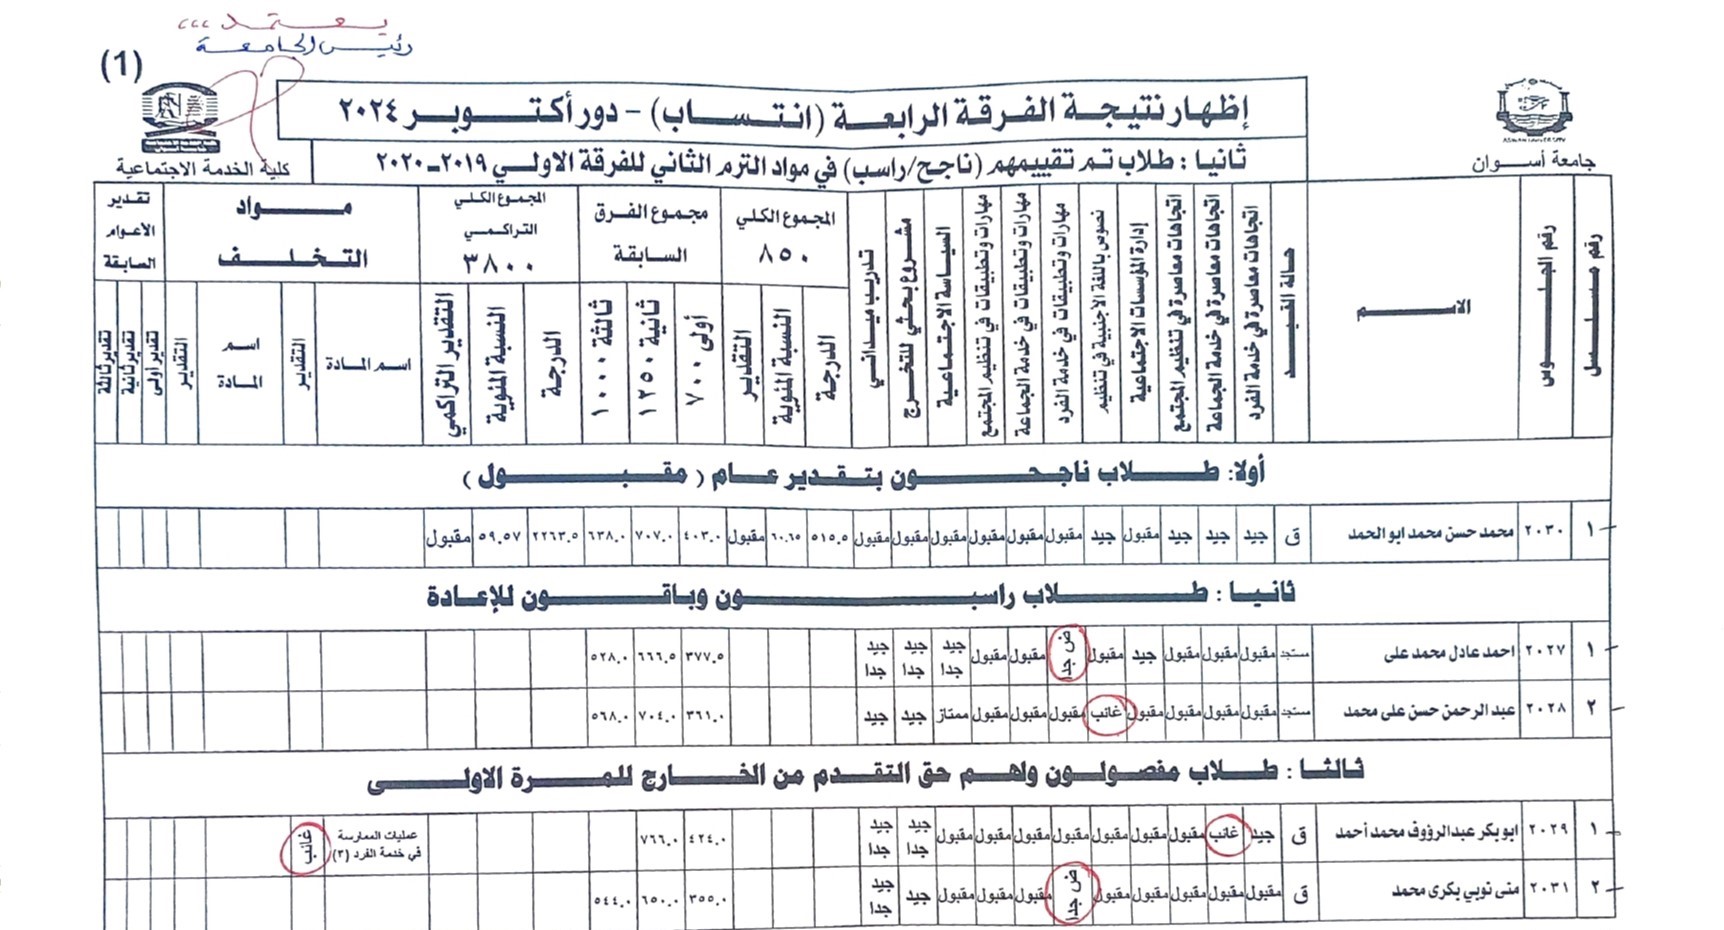 يعتمد،،،
رئيس الجامعة
(1)
إظهار نتيجة الفرقة الرابعة (انتساب) - دور أكتوبر ٢٠٢٤
ثانيا : طلاب تم تقييمهم (ناجح/راسب) في مواد الترم الثاني للفرقة الاولي ٢٠١٩-٢٠٢٠
جامعة أسوان
كلية الخدمة الاجتماعية
رقم مسلسل
رقم الجلوس
الاسم
حالة القيد
اتجاهات معاصرة في خدمة الفرد
اتجاهات معاصرة في خدمة الجماعة
اتجاهات معاصرة في تنظيم المجتمع
إدارة المؤسسات الاجتماعية
نصوص باللغة الاجنبية في تنظيم
مهارات وتطبيقات في خدمة الفرد
مهارات وتطبيقات في خدمة الجماعة
مهارات وتطبيقات في تنظيم المجتمع
السياسة الاجتماعية
مشروع بحثي للتخرج
تدريب ميداني
المجموع الكلي
٨٥٠
الدرجة
النسبة المئوية
التقدير
مجموع الفرق
السابقة
أولى ٧٠٠
ثانية ١٢٥٠
ثالثة ١٠٠٠
المجموع الكلي
التراكمي
٣٨٠٠
الدرجة
النسبة المئوية
التقدير التراكمي
مواد
التخلف
اسم المادة
التقدير
اسم
المادة
التقدير
تقدير
الأعوام
السابقة
تقدير أولى
تقدير ثانية
تقدير ثالثة
أولا: طلاب ناجحون بتقدير عام ( مقبول )
١ ٢٠٣٠ محمد حسن محمد ابو الحمد ق جيد جيد جيد مقبول جيد مقبول مقبول مقبول مقبول مقبول مقبول ٥١٥.٥ ٦٠.٦٥ مقبول ٤٠٣.٠ ٧٠٧.٠ ٦٣٨.٠ ٢٢٦٣.٥ ٥٩.٥٧ مقبول
ثانيا : طلاب راسبون وباقون للإعادة
١ ٢٠٢٧ احمد عادل محمد على مستجد مقبول مقبول مقبول جيد مقبول ض جدا مقبول مقبول جيد جدا جيد جدا جيد جدا ٣٧٧.٥ ٦٦٦.٥ ٥٢٨.٠
٢ ٢٠٢٨ عبد الرحمن حسن على محمد مستجد مقبول مقبول مقبول مقبول غائب مقبول مقبول مقبول ممتاز جيد جيد ٣٦١.٠ ٧٠٤.٠ ٥٦٨.٠
ثالثا : طلاب مفصولون ولهم حق التقدم من الخارج للمرة الاولى
١ ٢٠٢٩ ابو بكر عبد الرؤوف محمد أحمد ق جيد غائب مقبول مقبول مقبول مقبول مقبول مقبول مقبول جيد جدا جيد جدا ٤٢٤.٠ ٧٦٦.٠ عمليات الممارسة في خدمة الفرد (٣) غائب
٢ ٢٠٣١ منى نوبي بكرى محمد ق مقبول مقبول مقبول مقبول مقبول ض جدا مقبول مقبول مقبول جيد جيد جدا ٣٥٥.٠ ٦٥٠.٠ ٥٤٤.٠